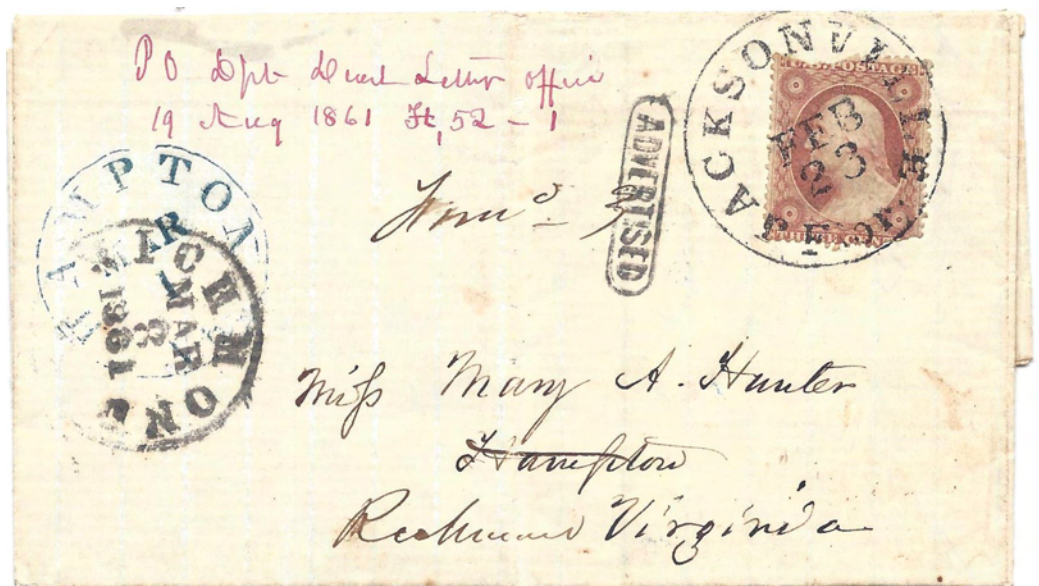 P O Dpt Dead Letter office
19 Aug 1861 52 - 1
JACKSONVILLE
U.S. POSTAGE
FEB
23
THREE CENTS
ADVERTISED
HAMPTON
MAR
1
RICHMOND
MAR
1861
Forwd
Miss Mary A. Hunter
Hampton
Richmond Virginia